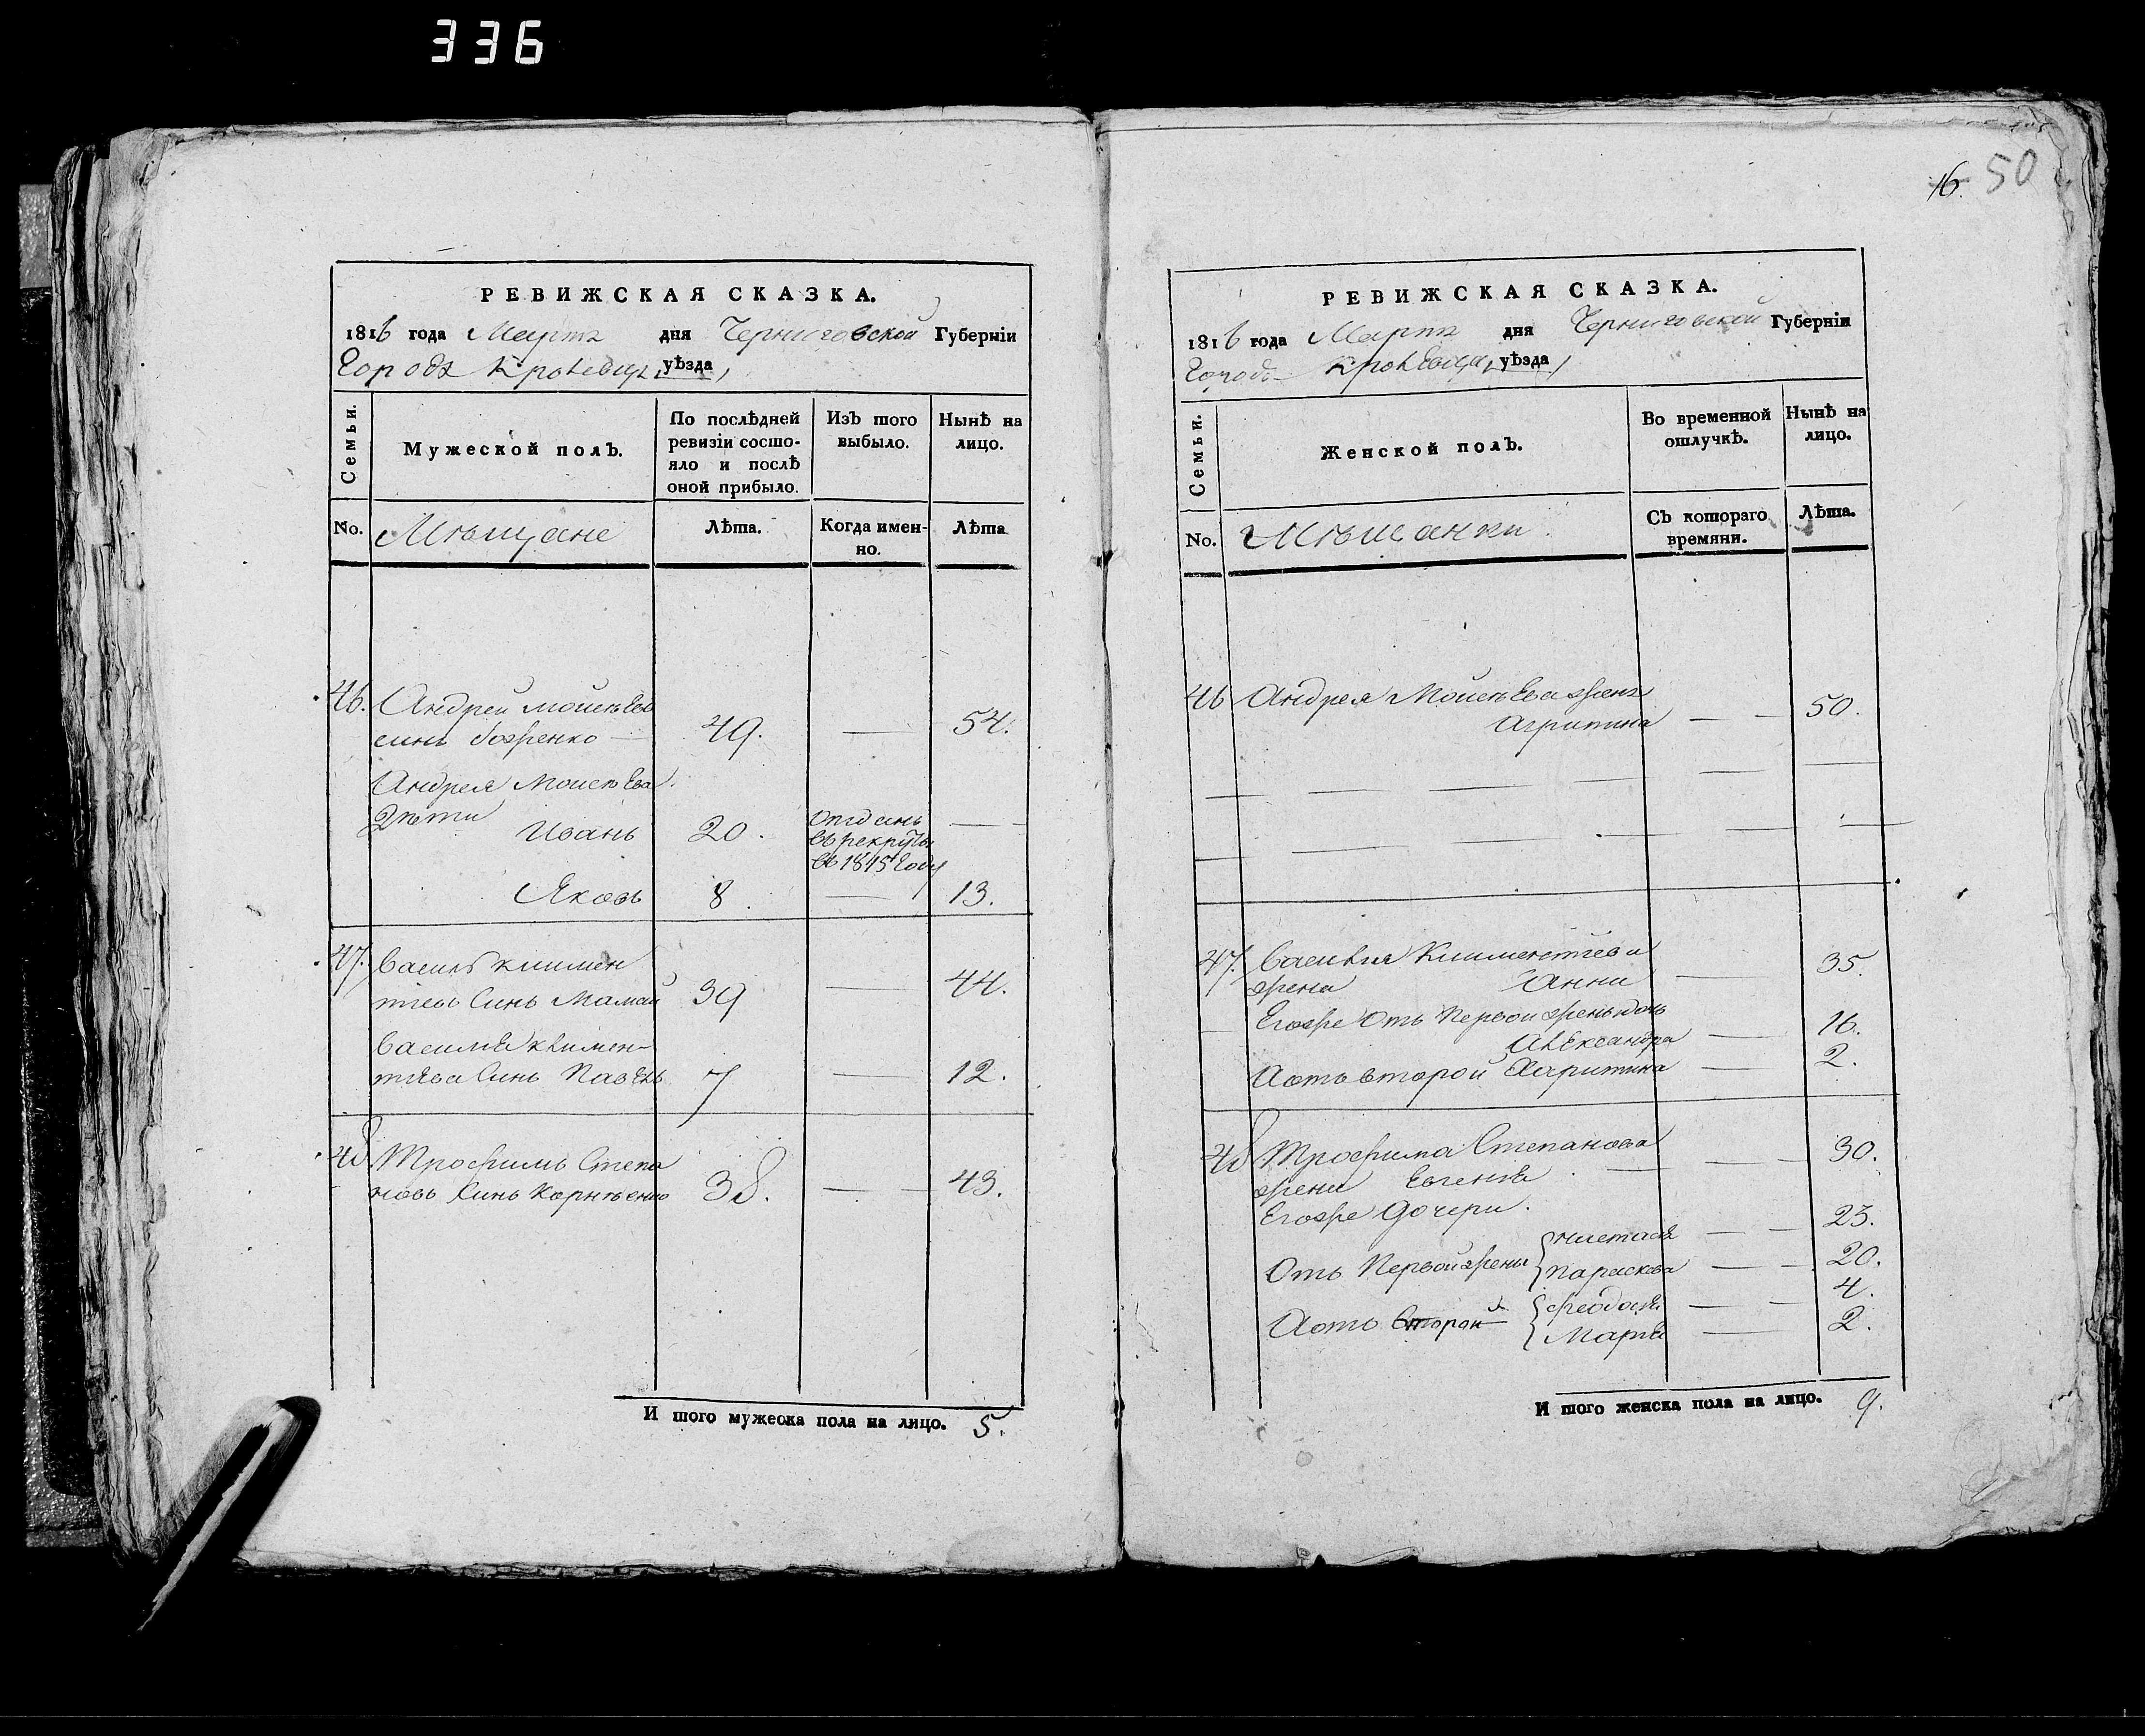 336
РЕВИЖСКАЯ СКАЗКА.
1816 года Марта дня Черниговской Губерніи
Города Кролевца, уѣзда,
Семьи.
Мужеской полъ.
По послѣдней
ревизіи состо-
яло и послѣ
оной прибыло.
Изъ того
выбыло.
Нынѣ на
лицо.
No.
Мѣщане
Лѣта.
Когда имен-
но.
Лѣта
46. Андрей Мойсѣевъ
синъ 49. — 54.
Андрея Мойсѣева
дѣти
Иванъ 20. Отданъ
въ рекруты
въ 1815 году —
Яковъ 8. — 13.
47. Василь Климен
тіевъ Синъ Мамай 39 — 44.
Василія Климен-
тіева Синъ Павелъ 7 — 12.
48 Трофимъ Степа
новъ Синъ Корнѣенко 38. — 43.
И того мужеска пола на лицо. 5.
16. 50
РЕВИЖСКАЯ СКАЗКА.
1816 года Марта дня Черниговской Губерніи
Города Кролевца, уѣзда,
Семьи.
Женской полъ.
Во временной
отлучкѣ.
Нынѣ на
лицо.
No.
Мѣщанки
Съ котораго
времяни.
Лѣта.
46 Андрея Мойсѣева жена
Агрипина — — 50.
47. Василія Климентіева
жена Анна — 35.
Егожъ Отъ Первой жены дочь
Александра — 16.
А отъ второй Агрипина — 2.
48 Трофима Степанова — — 30.
жена Евгенія —
Егоже Дочери.
Отъ Первой жены { Настасія — — 23.
Параскева — — 20.
А отъ Второй { Феодосія — — 4.
Марія — 2.
И того женска пола на лицо. 9.